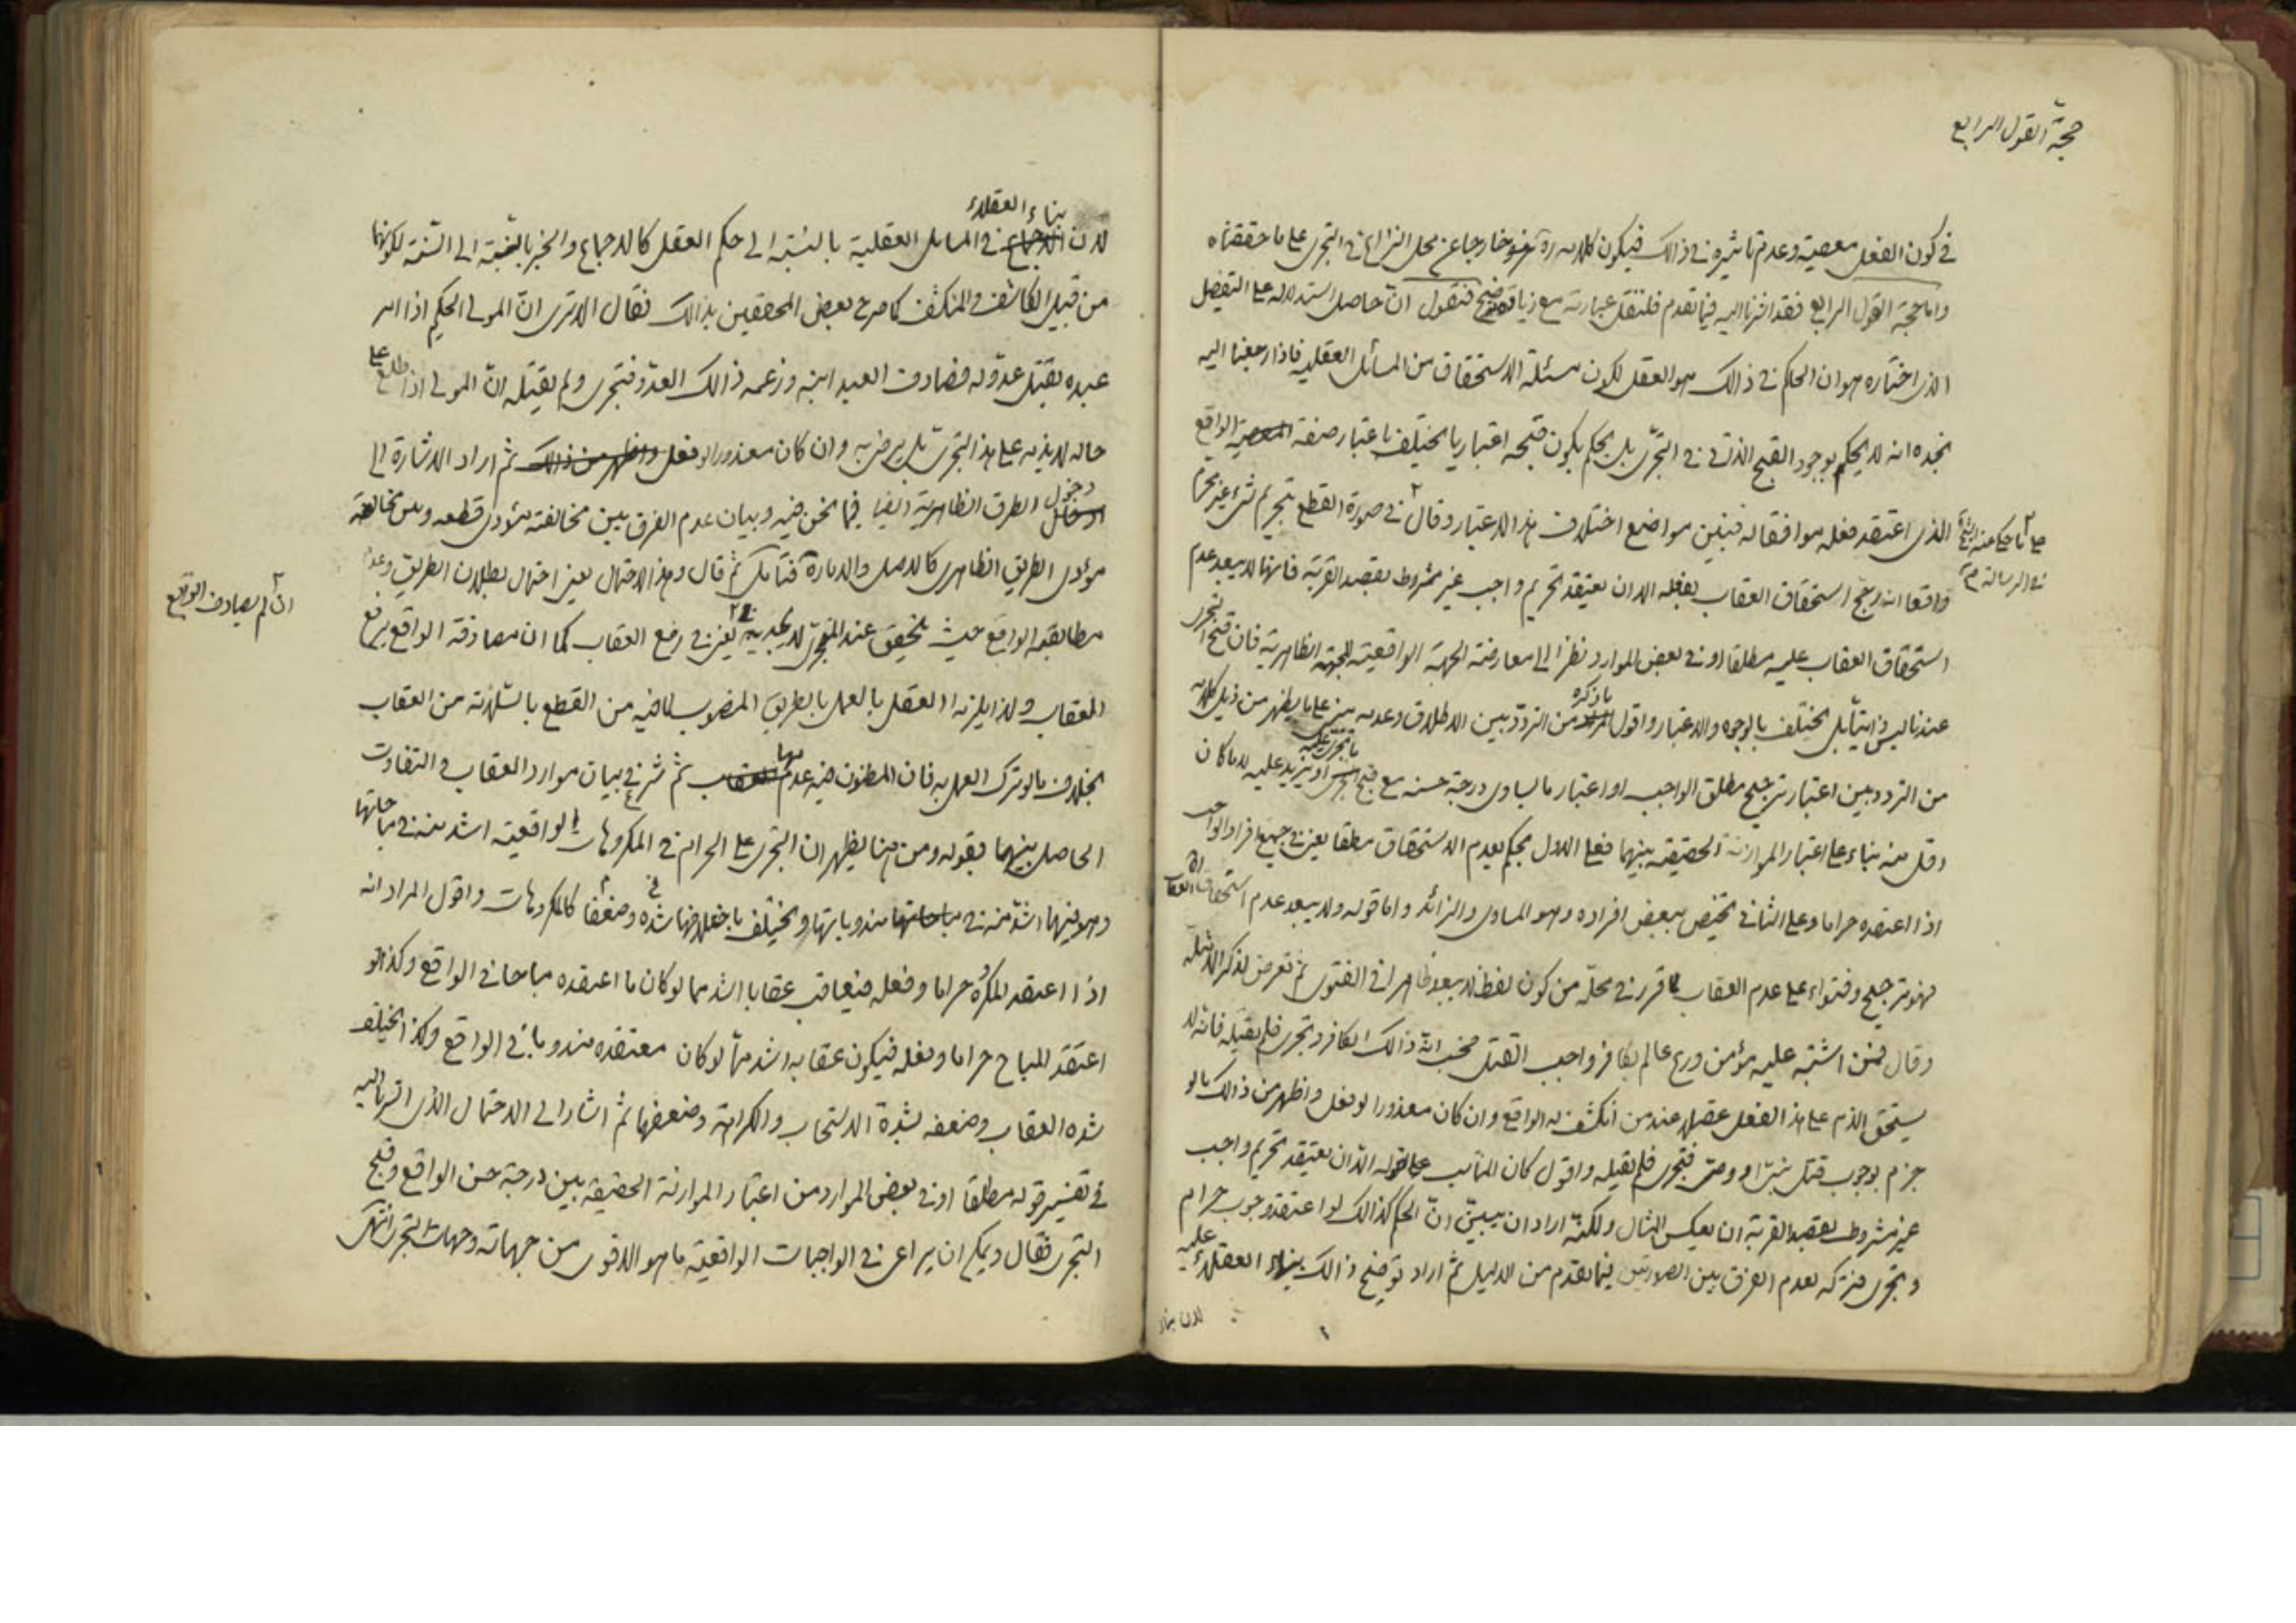 حجة القول الرابع
في كون الفعل معصية وعدم تاثيره في ذالك فيكون كلامه ره خارجا عن محل النزاع في التجري على ما حققناه
واما حجة القول الرابع فقد اشرنا اليه فيما تقدم فلننقل عبارته مع زيادة توضيح فنقول انّ حاصل استدلاله على التفصيل
الذي اختاره هو ان الحاكم في ذالك هو العقل لكون مسئلة الاستحقاق من المسائل العقلية فاذا رجعنا اليه
نجده انه لا يحكم بوجود القبح الذاتي في التجرّي بل يحكم بكون قبحه اعتباريا يختلف باعتبار صفة الواقع
الذي اعتقد فعله موافقا له فبيّن مواضع اختلاف هذا الاعتبار وقال في صورة القطع بتحريم شيء غير محرم
على ما حكي عنه
في الرسالة
واقعا انه رجّح استحقاق العقاب بفعله الا ان يعتقد تحريم واجب غير مشروط بقصد القربة فانه لا يبعد عدم
استحقاق العقاب عليه مطلقا او في بعض الموارد نظرا الى معارضة الجهة الواقعية للجهة الظاهرية فان قبح التجري
عندنا ليس ذاتيا بل يختلف بالوجوه والاعتبار واقول ما ذكره من التردّد بين الاطلاق وعدمه مبني على ما يظهر من ذيل كلامه
من التردد بين اعتبار ترجيح مطلق الواجب او اعتبار ما يساوي درجة حسنه مع قبح ما تجرى عليه او يزيد عليه لا ما كان
اقل منه بناء على اعتبار الموازنة الحقيقية بينهما فعلى الاول يحكم بعدم الاستحقاق مطلقا يعني في جميع افراد الواجب
اذا اعتقده حراما وعلى الثاني يختص ببعض افراده وهو المساوي والزائد واما قوله ولا يبعد عدم استحقاق العقاب
فهو ترجيح وفتواء على عدم العقاب لما قرر في محلّه من كون لفظ لا يبعد ظاهرا في الفتوى ثم تعرض لذكر الامثلة
وقال فمن اشتبه عليه مؤمن ورع عالم بكافر واجب القتل فحسب انّه ذالك الكافر وتجرى فلم يقتله فانه لا
يستحق الذم على هذا الفعل عقلا عند من انكشف له الواقع وان كان معذورا لو فعل واظهر من ذالك ما لو
جزم بوجوب قتل نبيّ او وصيّ فتجرى فلم يقتله واقول كان المناسب على قوله الا ان يعتقد تحريم واجب
غير مشروط بقصد القربة ان يعكس المثال ولكنّه اراد ان يبيّن انّ الحكم كذالك لو اعتقد وجوب حرام
وتجرى فتركه لعدم الفرق بين الصورتين فيما تقدم من الدليل ثم اراد توضيح ذالك ببناء العقلاء عليه
لان بناء
لان بناء العقلاء في المسائل العقلية بالنسبة الى حكم العقل كالاجماع والخبر بالنسبة الى السّنة لكونهما
من قبيل الكاشف والمنكشف كما صرح بعض المحققين بذالك فقال الا ترى انّ المولى الحكيم اذا امر
عبده بقتل عدوّ له فصادف العبد ابنه وزعمه ذالك العدوّ فتجرى ولم يقتله انّ المولى اذا اطلع على
حاله لا يذمه على هذا التجري بل يرضى به وان كان معذورا لو فعل واظهر من ذالك ثم اراد الاشارة الى
دخول الطرق الظاهرية ايضا فيما نحن فيه وبيان عدم الفرق بين مخالفة مؤدى قطعه وبين مخالفة
مؤدى الطريق الظاهري كالاصل والامارة فتأمل ثم قال وهذا الاحتمال يعني احتمال بطلان الطريق وعدم
مطابقة الواقع حيث يتحقق عند المتجري لا يجديه يعني في رفع العقاب كما ان مصادفة الواقع يرفع
ان لم يصادف الواقع
العقاب ولذا يلزمه العقل بالعمل بالطريق المنصوب لما فيه من القطع بالسّلامة من العقاب
بخلاف ما لو ترك العمل به فان المظنون فيه عدمها ثم شرع في بيان موارد العقاب والتفاوت
الحاصل بينهما بقوله ومن هنا يظهر ان التجري على الحرام في المكروهات الواقعية اشد منه في مباحاتها
وهو فيها اشدّ منه في مندوباتها ويختلف باختلافها شدّة وضعفا كالمكروهات واقول المراد انه
اذا اعتقد المكروه حراما وفعله فيعاقب عقابا اشد مما لو كان ما اعتقده مباحا في الواقع وكذا لو
اعتقد المباح حراما وفعله فيكون عقابه اشد ممّا لو كان معتقده مندوبا في الواقع وكذا يختلف
شدة العقاب وضعفه بشدة الاستحباب والكراهة وضعفهما ثم اشار الى الاحتمال الذي اشرنا اليه
في تفسير قوله مطلقا او في بعض الموارد من اعتبار الموازنة الحقيقية بين درجة حسن الواقع وقبح
التجري فقال ويمكن ان يراعى في الواجبات الواقعية ما هو الاقوى من جهاته وجهات التجري انتهى